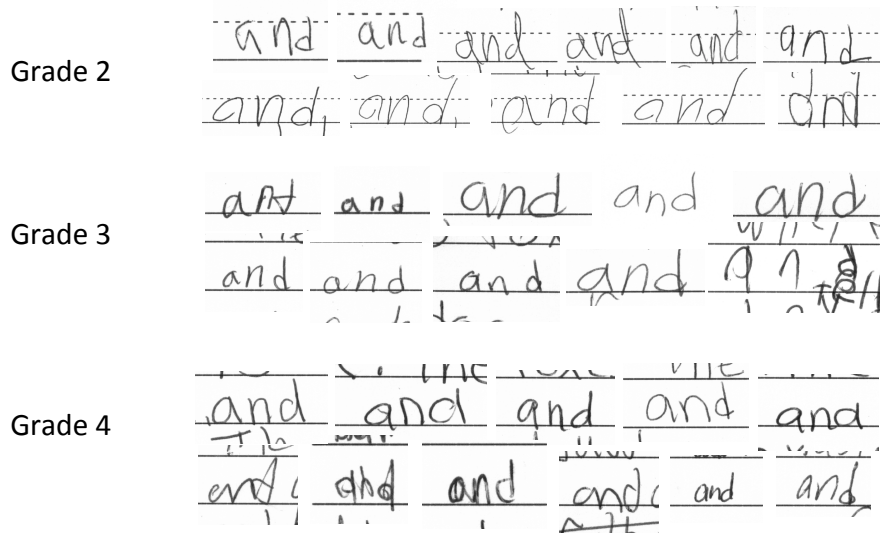 Grade 2
and and and and and and
and, and, and and and
Grade 3
and and and and and
and and and and and
Grade 4
and and and and and
and and and and and and